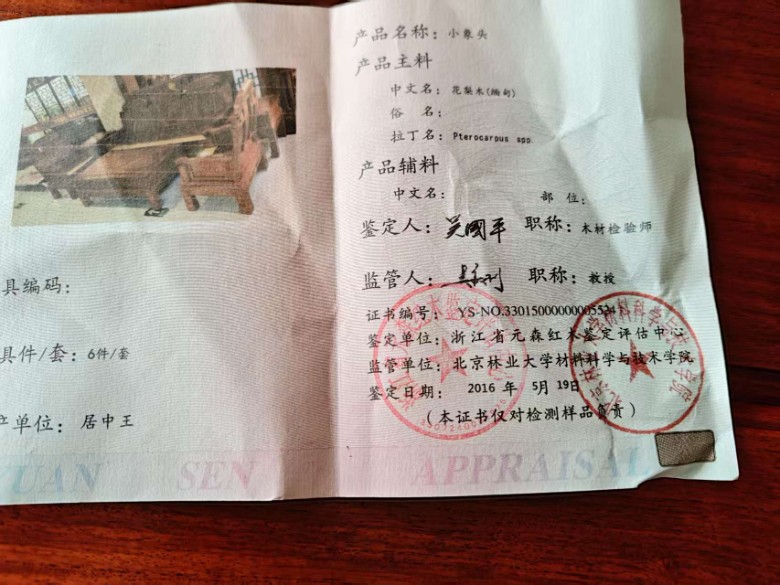 具编码：
具件/套：6件/套
产单位：居中王
产品名称：小象头
产品主料
中文名：花梨木(缅甸)
俗 名：
拉丁名：Pterocarous spp
产品辅料
中文名： 部 位：
鉴定人：吴國平 职称：木材检验师
监管人： 职称：教授
证书编号：YS-NO.33015000000005524
鉴定单位：浙江省元森红木鉴定评估中心
监管单位：北京林业大学材料科学与技术学院
鉴定日期：2016 年 5月 19日
（本证书仅对检测样品负责）
YUAN SEN APPRAISAL